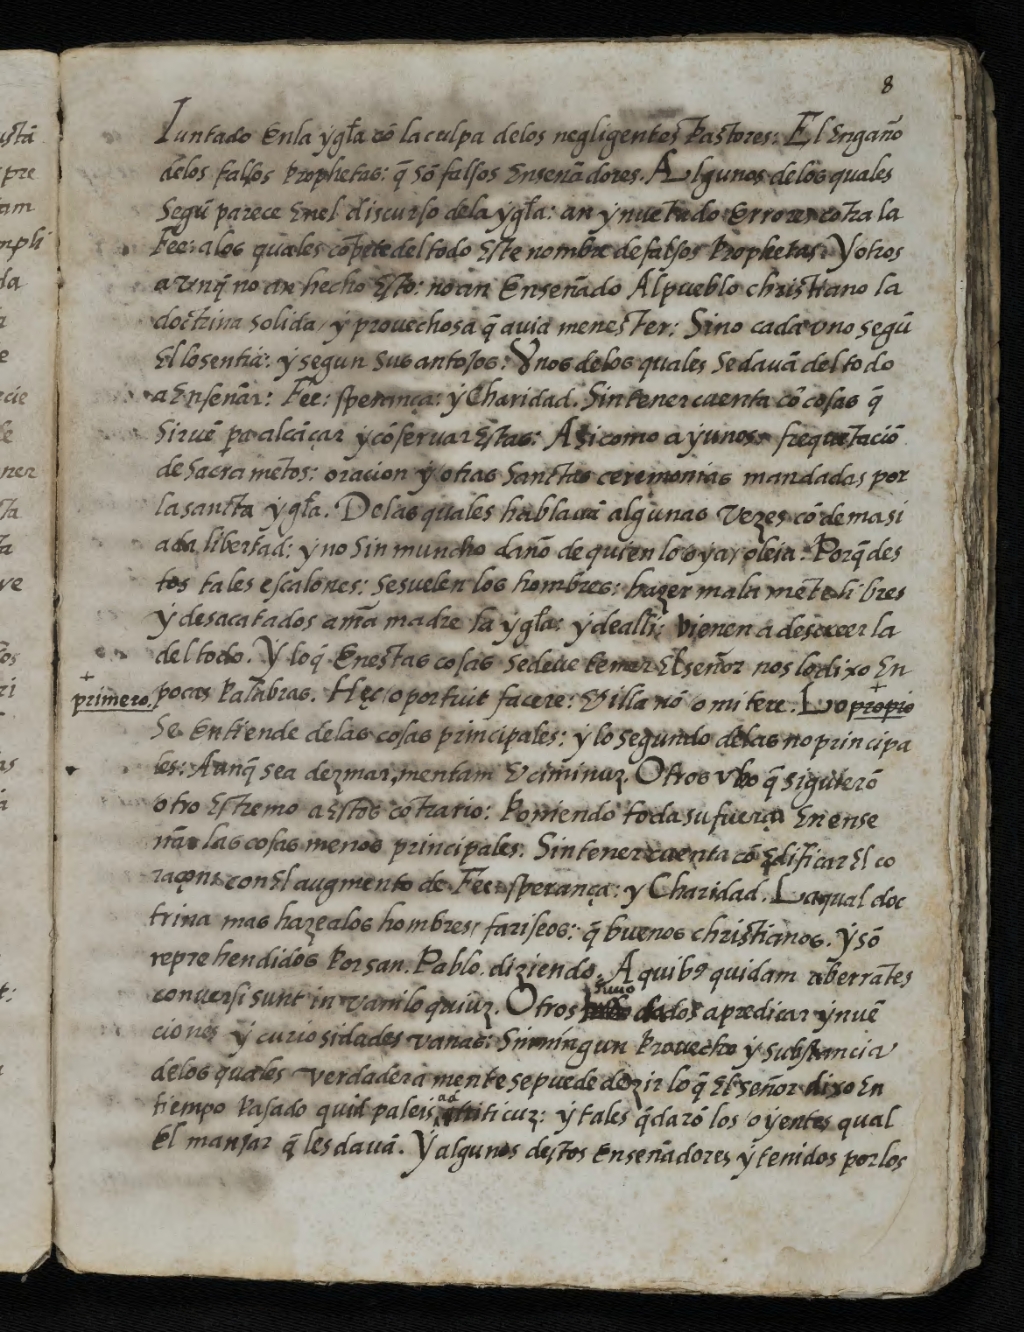 8
Iuntado Enla ygłia cō la culpa delos negligentes Pastores: El Engaño
delos falsos Prophetas: q̄ sō falsos Enseñadores. Algunos delos quales
Segū parece Enel discurso dela ygłia: an ynuētado Errores cōtra la
Fee: alos quales cōpete del todo Este nombre de falsos Prophetas. Y otros
aunq̄ no an hecho Esto: no an Enseñado Al pueblo christiano la
doctrina solida, y prouechosa q̄ auia menester: Sino cada vno segū
El lo sentia: y segun sus antojos: Vnos delos quales se dauā del todo
a Enseñar: Fee: sperança: y Charidad. Sin tener cuenta cō cosas q̄
siruē pa alcāçar y cōseruar Estas: Asi como ayunos: frequētaciō
de Sacramētos: oracion y otras Sanctas ceremonias mandadas por
la sancta ygłia. Delas quales hablauā algunas vezes cō demasi
ada libertad: y no sin muncho daño de quien lo oya, o leia. Porq̄ des
tos tales escalones: se suelen los hombres: hazer mala mēte libres
y desacatados a ntrā madre la ygłia: y de alli: vienen a descreer la
del todo. Y lo q̄ Enestas cosas se deue temer El señor nos lo dixo En
primero. pocas Palabras. Hęc oportuit facere: & illa nō omitere. Lo propio
Se Entiende delas cosas principales: y lo segundo delas no principa
les: Aunq̄ sea dezmar, mentam & ciminuz. Otros vbo q̄ siguierō
otro Estremo a Estos cōtrario: Poniendo toda su fuerça En ense
ñar las cosas menos principales. Sin tener cuenta cō Edificar El co
raçon con El augmento de Fee: sperança: y Charidad. La qual doc
trina mas haze alos hombres, fariseos: q̄ buenos christianos. Y sō
reprehendidos Por san. Pablo. diziendo. A quibꝰ quidam aberrātes
conuersi sunt in vaniloquiuz. Otros dados a predicar ynuē
ciones y curiosidades vanas: Sin ningun Prouecho y substancia
delos quales verdadera mente se puede dezir lo q̄ El señor dixo En
tiempo Pasado quid paleis ad triticuz: y tales q̄darō los oyentes qual
El manjar q̄ les dauā. Y algunos destos Enseñadores y tenidos por los